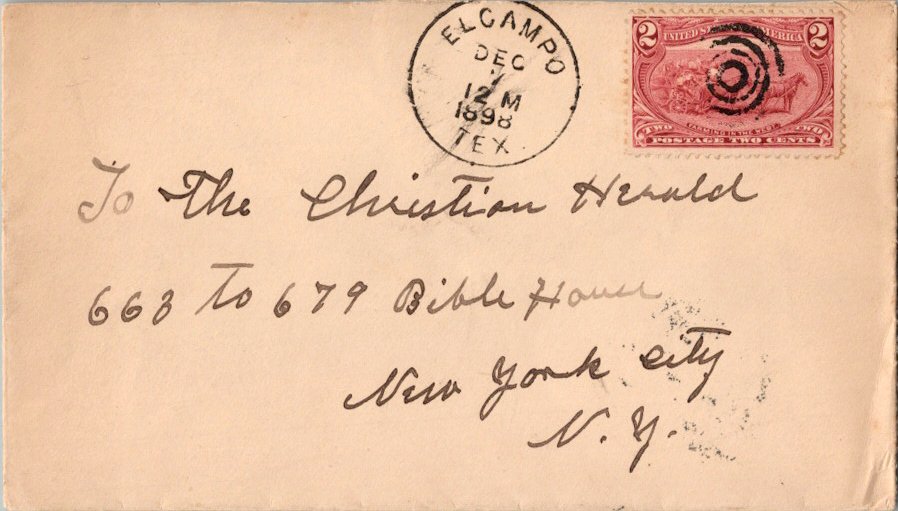 ELCAMPO
DEC
7
12 M
1898
TEX.
2 UNITED STATES OF AMERICA 2
FARMING IN THE WEST
TWO TWO
POSTAGE TWO CENTS
To The Christian Herald
663 to 679 Bible House
New York City
N. Y.